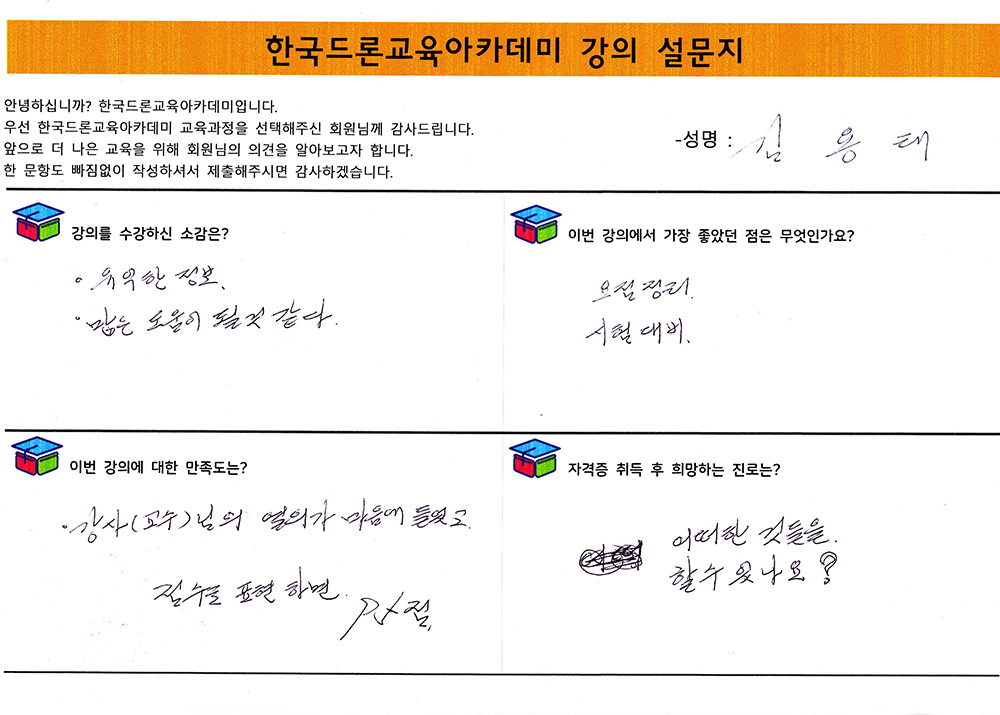 한국드론교육아카데미 강의 설문지
안녕하십니까? 한국드론교육아카데미입니다.
우선 한국드론교육아카데미 교육과정을 선택해주신 회원님께 감사드립니다.
앞으로 더 나은 교육을 위해 회원님의 의견을 알아보고자 합니다.
한 문항도 빠짐없이 작성하셔서 제출해주시면 감사하겠습니다.
-성명 : 김 용 태
강의를 수강하신 소감은?
· 유익한 정보.
· 많은 도움이 될것 같다.
이번 강의에서 가장 좋았던 점은 무엇인가요?
요점정리.
시험 대비.
이번 강의에 대한 만족도는?
· 강사(교수)님의 열의가 마음에 들었고.
점수로 표현 하면.
점.
자격증 취득 후 희망하는 진로는?
어떠한 것들을.
할수 있나요?